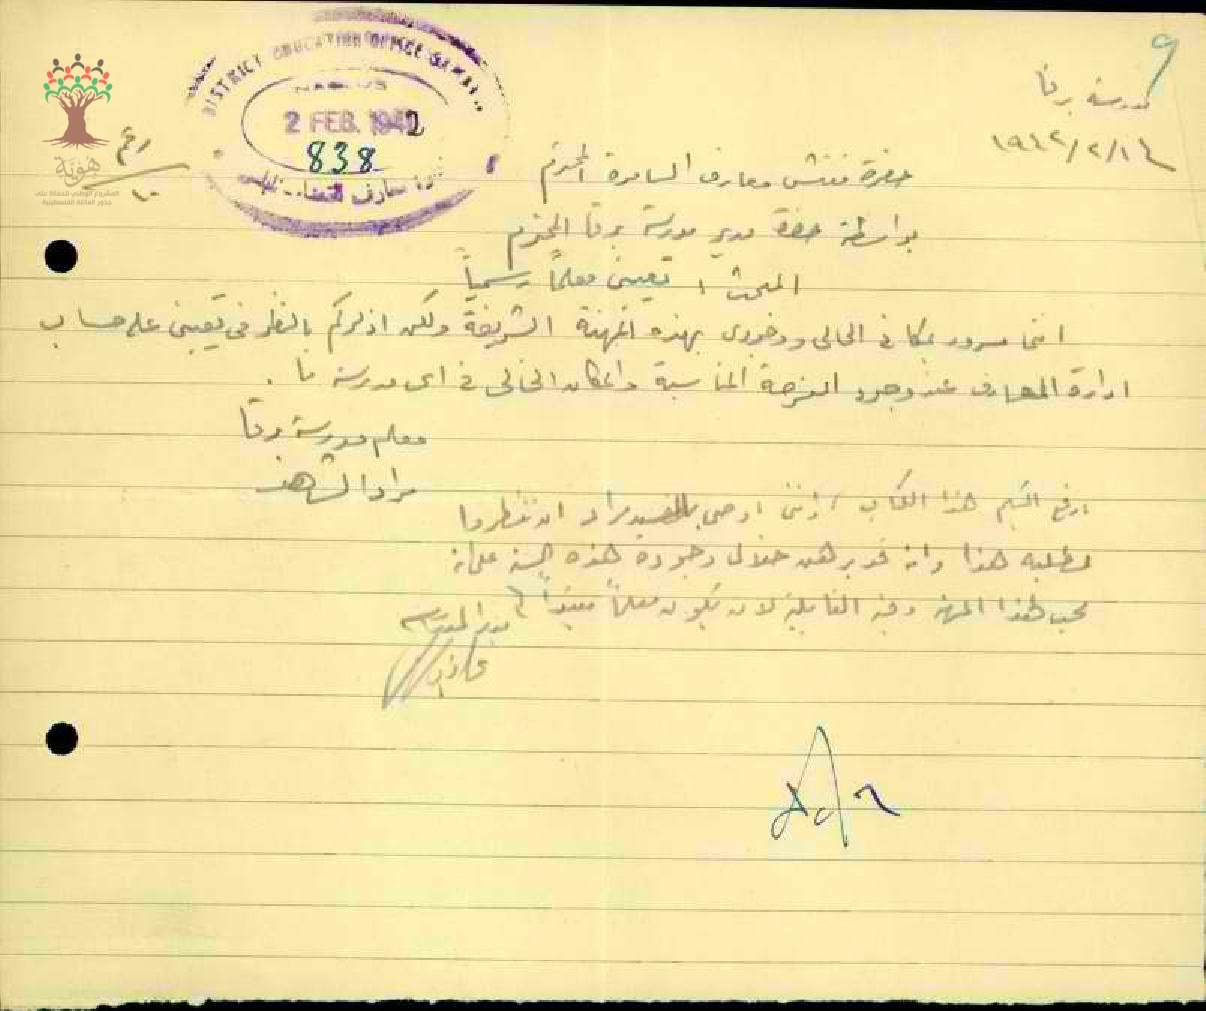 مدرسة برقا
١٩٤٢/٢/١٤
DISTRICT EDUCATION OFFICE SAMARIA
NABLUS
2 FEB. 1942
838
هوية
المشروع الوطني للحفاظ على
جذور العائلة الفلسطينية
حضرة مفتش معارف السامرة المحترم
بواسطة حضرة مدير مدرسة برقا المحترم
المبحث : تعييني معلماً رسمياً
انني مسرور بمكاني الحالي ووجودي بهذه المهنة الشريفة ولكن اذكركم بالنظر في تعييني على حساب
ادارة المعارف عند وجود الفرصة المناسبة والمكان الخالي في اي مدرسة ما .
معلم مدرسة برقا
ارفع اليكم هذا الكتاب وانني اوصي مراد ان تنظروا
لطلبه هذا وانه قد برهن خلال وجوده هذه السنة على انه
محب لهذا المهنة وفيه القابلية لان يكون معلماً مفيداً
مدير المدرسة